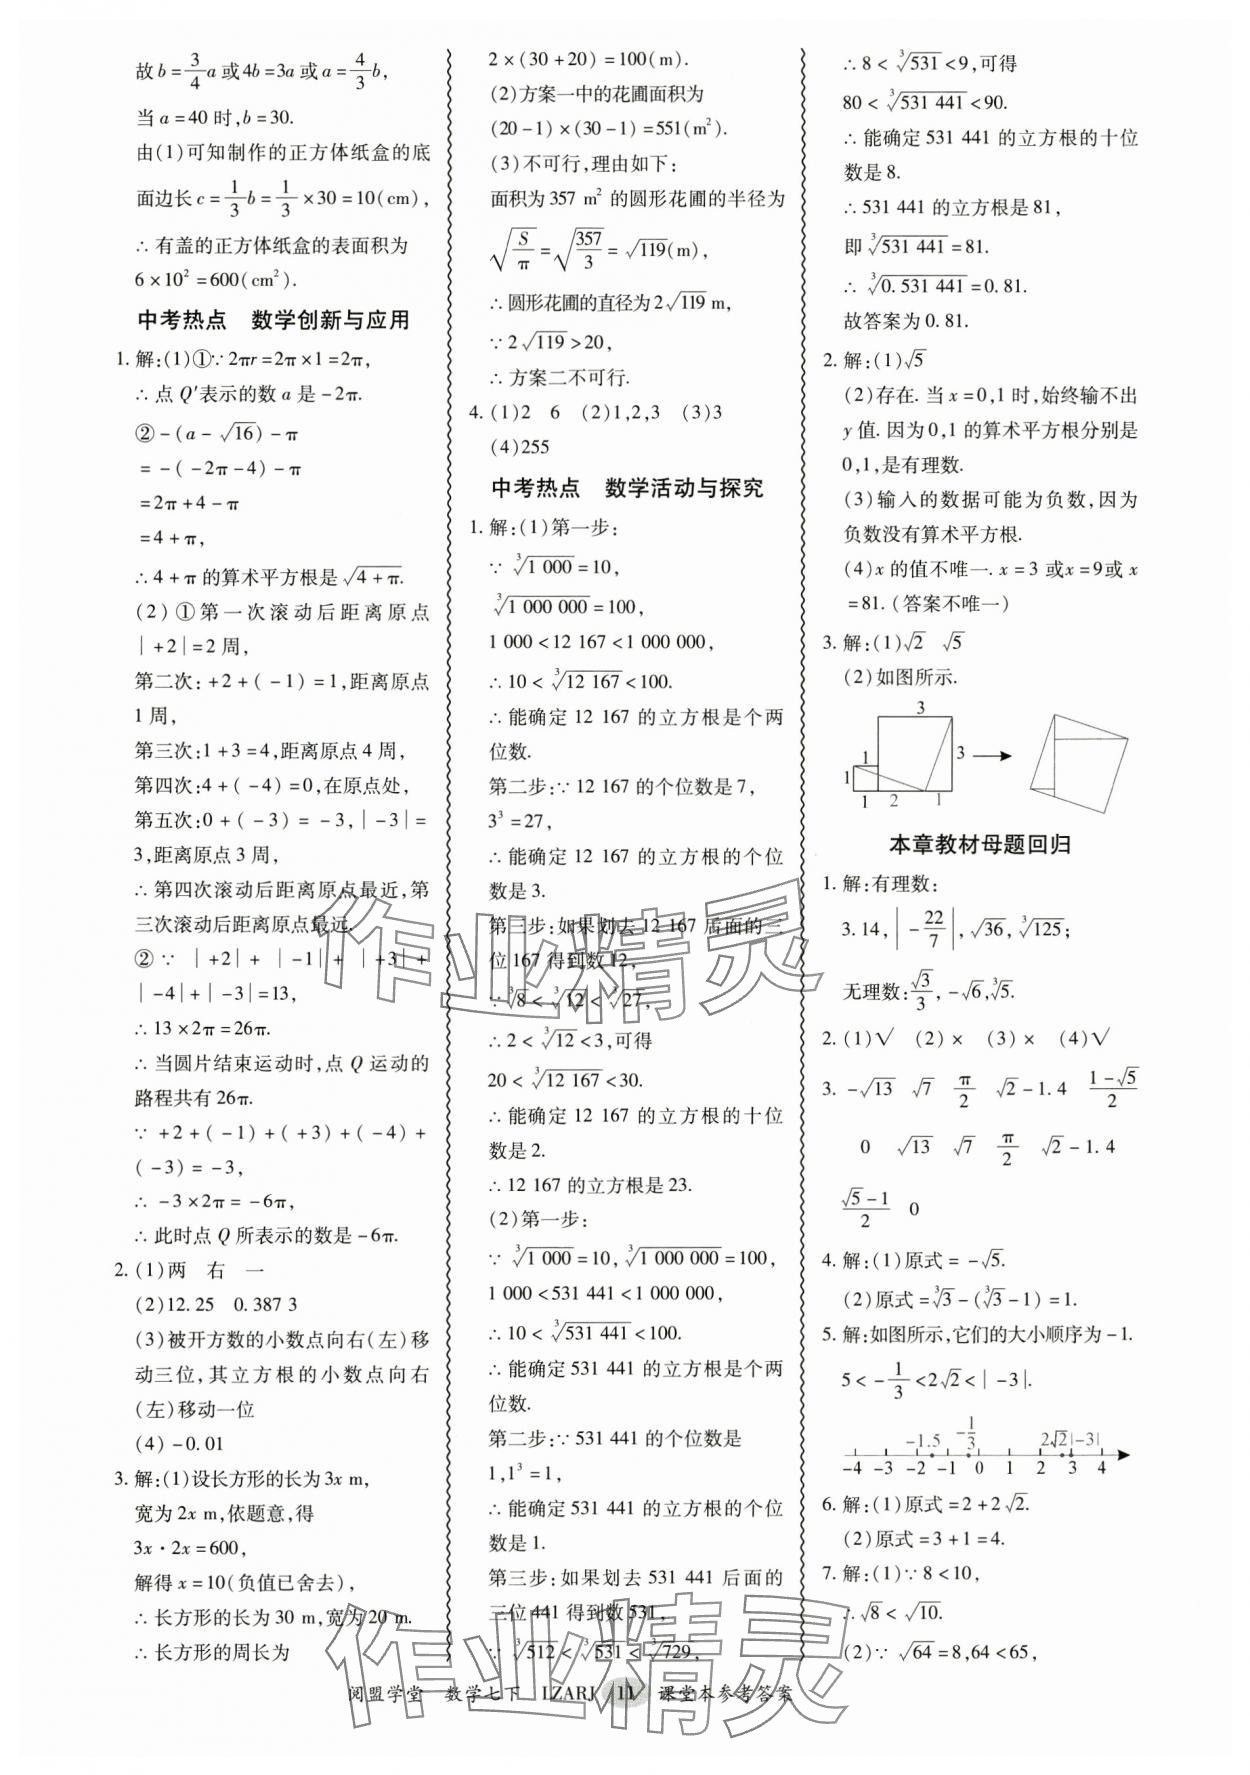 故b=3/4a或4b=3a或a=4/3b,
当a=40时,b=30.
由(1)可知制作的正方体纸盒的底
面边长c=1/3b=1/3×30=10(cm),
∴有盖的正方体纸盒的表面积为
6×10²=600(cm²).
中考热点 数学创新与应用
1.解:(1)①∵2πr=2π×1=2π,
∴点Q′表示的数a是-2π.
②-(a-√16)-π
=-(-2π-4)-π
=2π+4-π
=4+π,
∴4+π的算术平方根是√(4+π).
(2)①第一次滚动后距离原点
|+2|=2周,
第二次:+2+(-1)=1,距离原点
1周,
第三次:1+3=4,距离原点4周,
第四次:4+(-4)=0,在原点处,
第五次:0+(-3)=-3,|-3|=
3,距离原点3周,
∴第四次滚动后距离原点最近,第
三次滚动后距离原点最远.
②∵|+2|+|-1|+|+3|+
|-4|+|-3|=13,
∴13×2π=26π.
∴当圆片结束运动时,点Q运动的
路程共有26π.
∵+2+(-1)+(+3)+(-4)+
(-3)=-3,
∴-3×2π=-6π,
∴此时点Q所表示的数是-6π.
2.(1)两 右 一
(2)12.25 0.387 3
(3)被开方数的小数点向右(左)移
动三位,其立方根的小数点向右
(左)移动一位
(4)-0.01
3.解:(1)设长方形的长为3x m,
宽为2x m,依题意,得
3x·2x=600,
解得x=10(负值已舍去),
∴长方形的长为30 m,宽为20 m.
∴长方形的周长为
2×(30+20)=100(m).
(2)方案一中的花圃面积为
(20-1)×(30-1)=551(m²).
(3)不可行,理由如下:
面积为357 m²的圆形花圃的半径为
√(S/π)=√(357/3)=√119(m),
∴圆形花圃的直径为2√119 m,
∵2√119>20,
∴方案二不可行.
4.(1)2 6 (2)1,2,3 (3)3
(4)255
中考热点 数学活动与探究
1.解:(1)第一步:
∵³√1 000=10,
³√1 000 000=100,
1 000<12 167<1 000 000,
∴10<³√12 167<100.
∴能确定12 167的立方根是个两
位数.
第二步:∵12 167的个位数是7,
3³=27,
∴能确定12 167的立方根的个位
数是3.
第三步:如果划去12 167后面的三
位167得到数12,
∵³√8<³√12<³√27,
∴2<³√12<3,可得
20<³√12 167<30.
∴能确定12 167的立方根的十位
数是2.
∴12 167的立方根是23.
(2)第一步:
∵³√1 000=10,³√1 000 000=100,
1 000<531 441<1 000 000,
∴10<³√531 441<100.
∴能确定531 441的立方根是个两
位数.
第二步:∵531 441的个位数是
1,1³=1,
∴能确定531 441的立方根的个位
数是1.
第三步:如果划去531 441后面的
三位441得到数531,
∵³√512<³√531<³√729,
∴8<³√531<9,可得
80<³√531 441<90.
∴能确定531 441的立方根的十位
数是8.
∴531 441的立方根是81,
即³√531 441=81.
∴³√0.531 441=0.81.
故答案为0.81.
2.解:(1)√5
(2)存在.当x=0,1时,始终输不出
y值.因为0,1的算术平方根分别是
0,1,是有理数.
(3)输入的数据可能为负数,因为
负数没有算术平方根.
(4)x的值不唯一.x=3或x=9或x
=81.(答案不唯一)
3.解:(1)√2 √5
(2)如图所示.
3
1 3
1
1 2 1
本章教材母题回归
1.解:有理数:
3.14,|-22/7|,√36,³√125;
无理数:√3/3,-√6,³√5.
2.(1)√ (2)× (3)× (4)√
3.-√13 √7 π/2 √2-1.4 (1-√5)/2
0 √13 √7 π/2 √2-1.4
(√5-1)/2 0
4.解:(1)原式=-√5.
(2)原式=³√3-(³√3-1)=1.
5.解:如图所示,它们的大小顺序为-1.
5<-1/3<2√2<|-3|.
-1.5 -1/3 2√2 |-3|
-4 -3 -2 -1 0 1 2 3 4
6.解:(1)原式=2+2√2.
(2)原式=3+1=4.
7.解:(1)∵8<10,
∴√8<√10.
(2)∵√64=8,64<65,
阅盟学堂 数学七下 LZARJ 11 课堂本参考答案
作业精灵
作业精灵